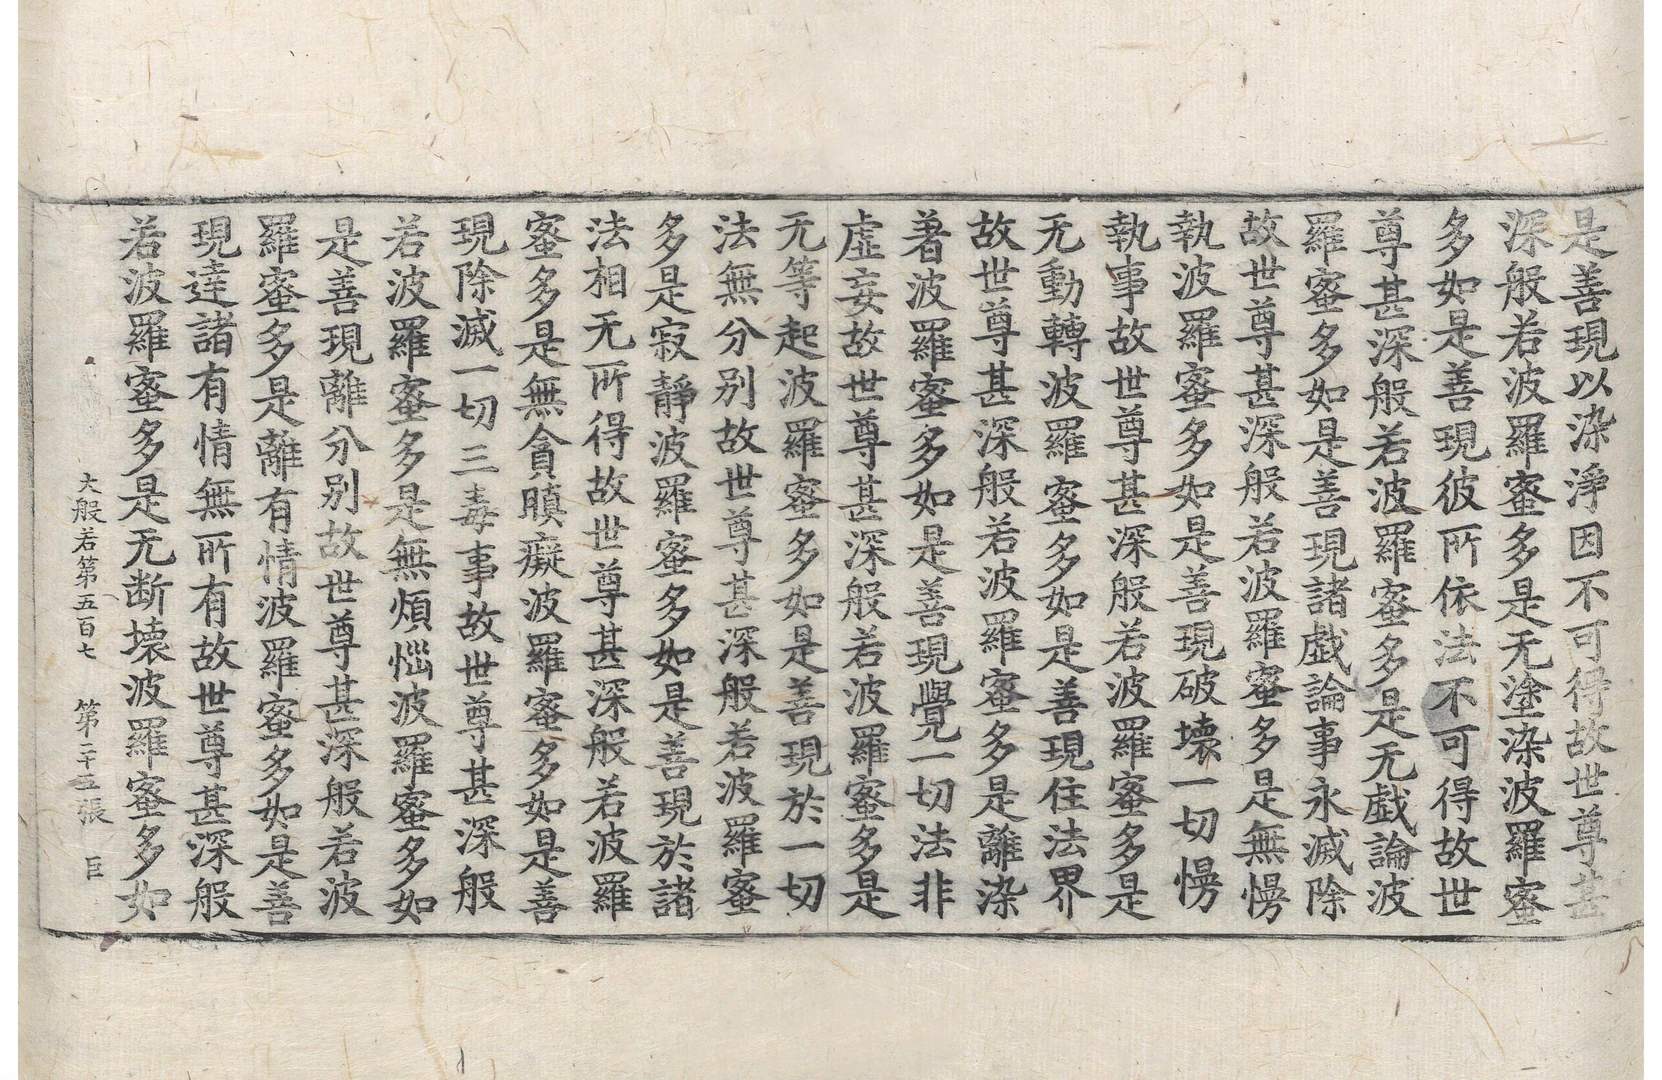 是善現以染淨因不可得故世尊甚
深般若波羅蜜多是无塗染波羅蜜
多如是善現彼所依法不可得故世
尊甚深般若波羅蜜多是无戱論波
羅蜜多如是善現諸戱論事永滅除
故世尊甚深般若波羅蜜多是無慢
執波羅蜜多如是善現破壞一切慢
執事故世尊甚深般若波羅蜜多是
无動轉波羅蜜多如是善現住法界
故世尊甚深般若波羅蜜多是離染
著波羅蜜多如是善現覺一切法非
虛妄故世尊甚深般若波羅蜜多是
无等起波羅蜜多如是善現於一切
法無分別故世尊甚深般若波羅蜜
多是寂靜波羅蜜多如是善現於諸
法相无所得故世尊甚深般若波羅
蜜多是無貪瞋癡波羅蜜多如是善
現除滅一切三毒事故世尊甚深般
若波羅蜜多是無煩惱波羅蜜多如
是善現離分別故世尊甚深般若波
羅蜜多是離有情波羅蜜多如是善
現達諸有情無所有故世尊甚深般
若波羅蜜多是无断壞波羅蜜多如
大般若第五百七 第二十五張 臣